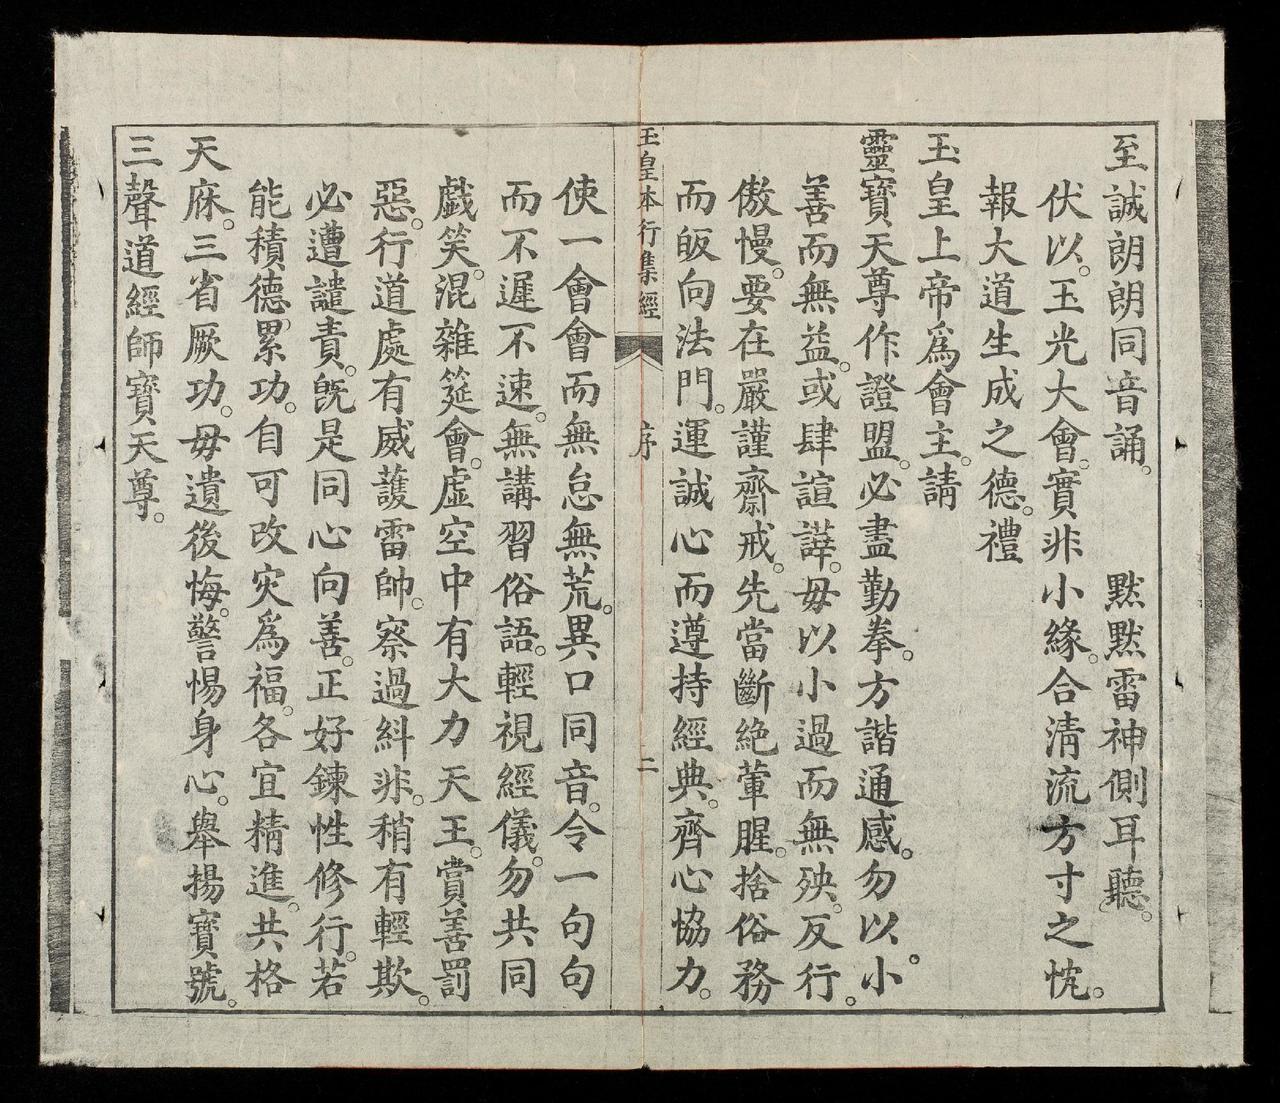 至誠朗朗同音誦。　默默雷神側耳聽。
伏以。玉光大會。實非小緣。合清流方寸之忱。
報大道生成之德。禮
玉皇上帝爲會主。請
靈寶天尊作證盟。必盡勤拳。方諧通感。勿以小
善而無益。或肆諠譁。毋以小過而無殃。反行。
傲慢。要在嚴謹齋戒。先當斷絶葷腥。捨俗務
而皈向法門。運誠心而遵持經典。齊心協力。
玉皇本行集經　序　二
使一會會而無怠無荒。異口同音。令一句句
而不遲不速。無講習俗語。輕視經儀。勿共同
戲笑。混雜筵會。虛空中有大力天王。賞善罰
惡。行道處有威護雷帥。察過糾非。稍有輕欺。
必遭譴責。既是同心向善。正好鍊性修行。若
能積德累功。自可改灾爲福。各宜精進。共格
天庥。三省厥功。毋遺後悔。警惕身心。舉揚寶號。
三聲道經師寶天尊。